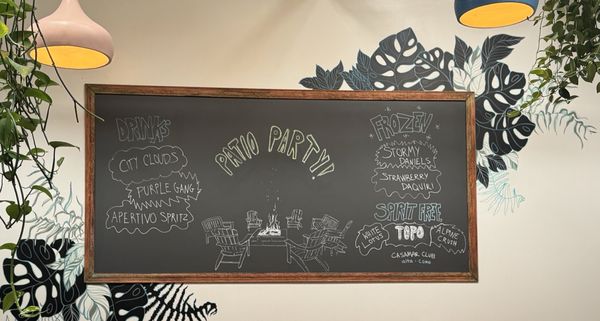 DRINKS
CITY CLOUDS
PURPLE GANG
APERTIVO SPRITZ
PATIO PARTY!
FROZEN
STORMY
DANIELS
STRAWBERRY
DAQUIRI
SPIRIT FREE
WHITE
TOPO
ALPINE
CASAMAR CLUB